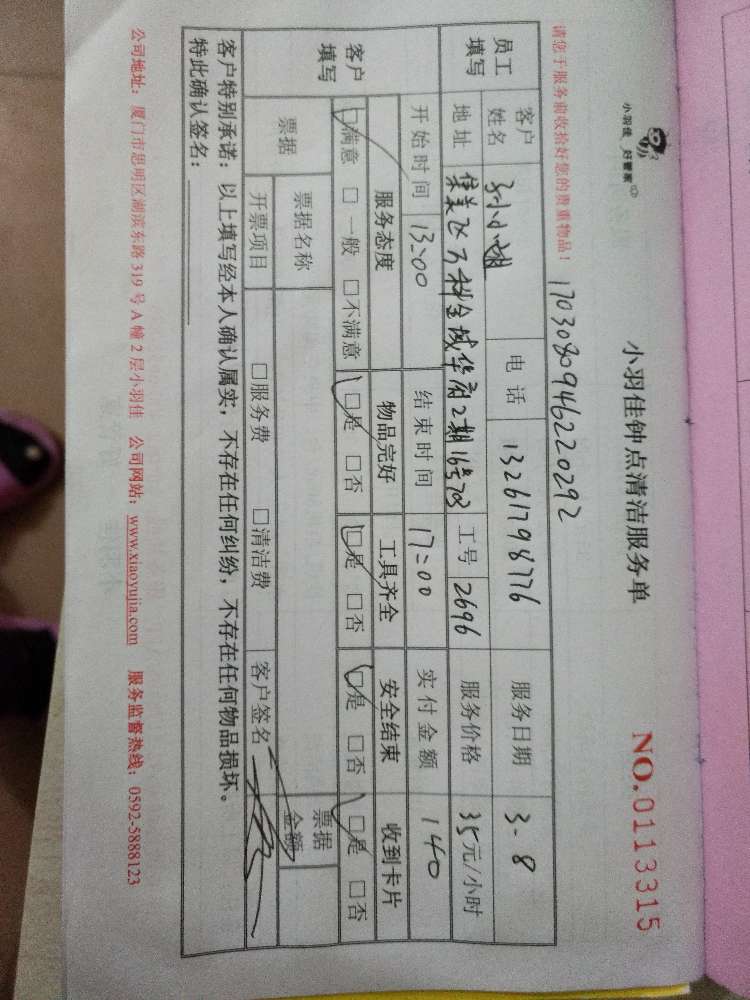 小羽佳 好管家
小羽佳钟点清洁服务单
NO.0113315
请您于服务前收拾好您的贵重物品!
1703080946220292
员工填写 客户姓名 电话 13261798776 服务日期 3-8
地址 集美区万科金域华府2期16号702 工号 2696 服务价格 35元/小时
开始时间 13:00 结束时间 17:00 实付金额 140
客户填写 服务态度 物品完好 工具齐全 安全结束 收到卡片
□满意 □一般 □不满意 □是 □否 □是 □否 □是 □否 □是 □否
票据 票据名称 票据金额
开票项目 □服务费 □清洁费 客户签名
客户特别承诺:以上填写经本人确认属实,不存在任何纠纷,不存在任何物品损坏。
特此确认签名:
公司地址:厦门市思明区湖滨东路319号A幢2层小羽佳 公司网站:www.xiaoyujia.com 服务监督热线:0592-5888123